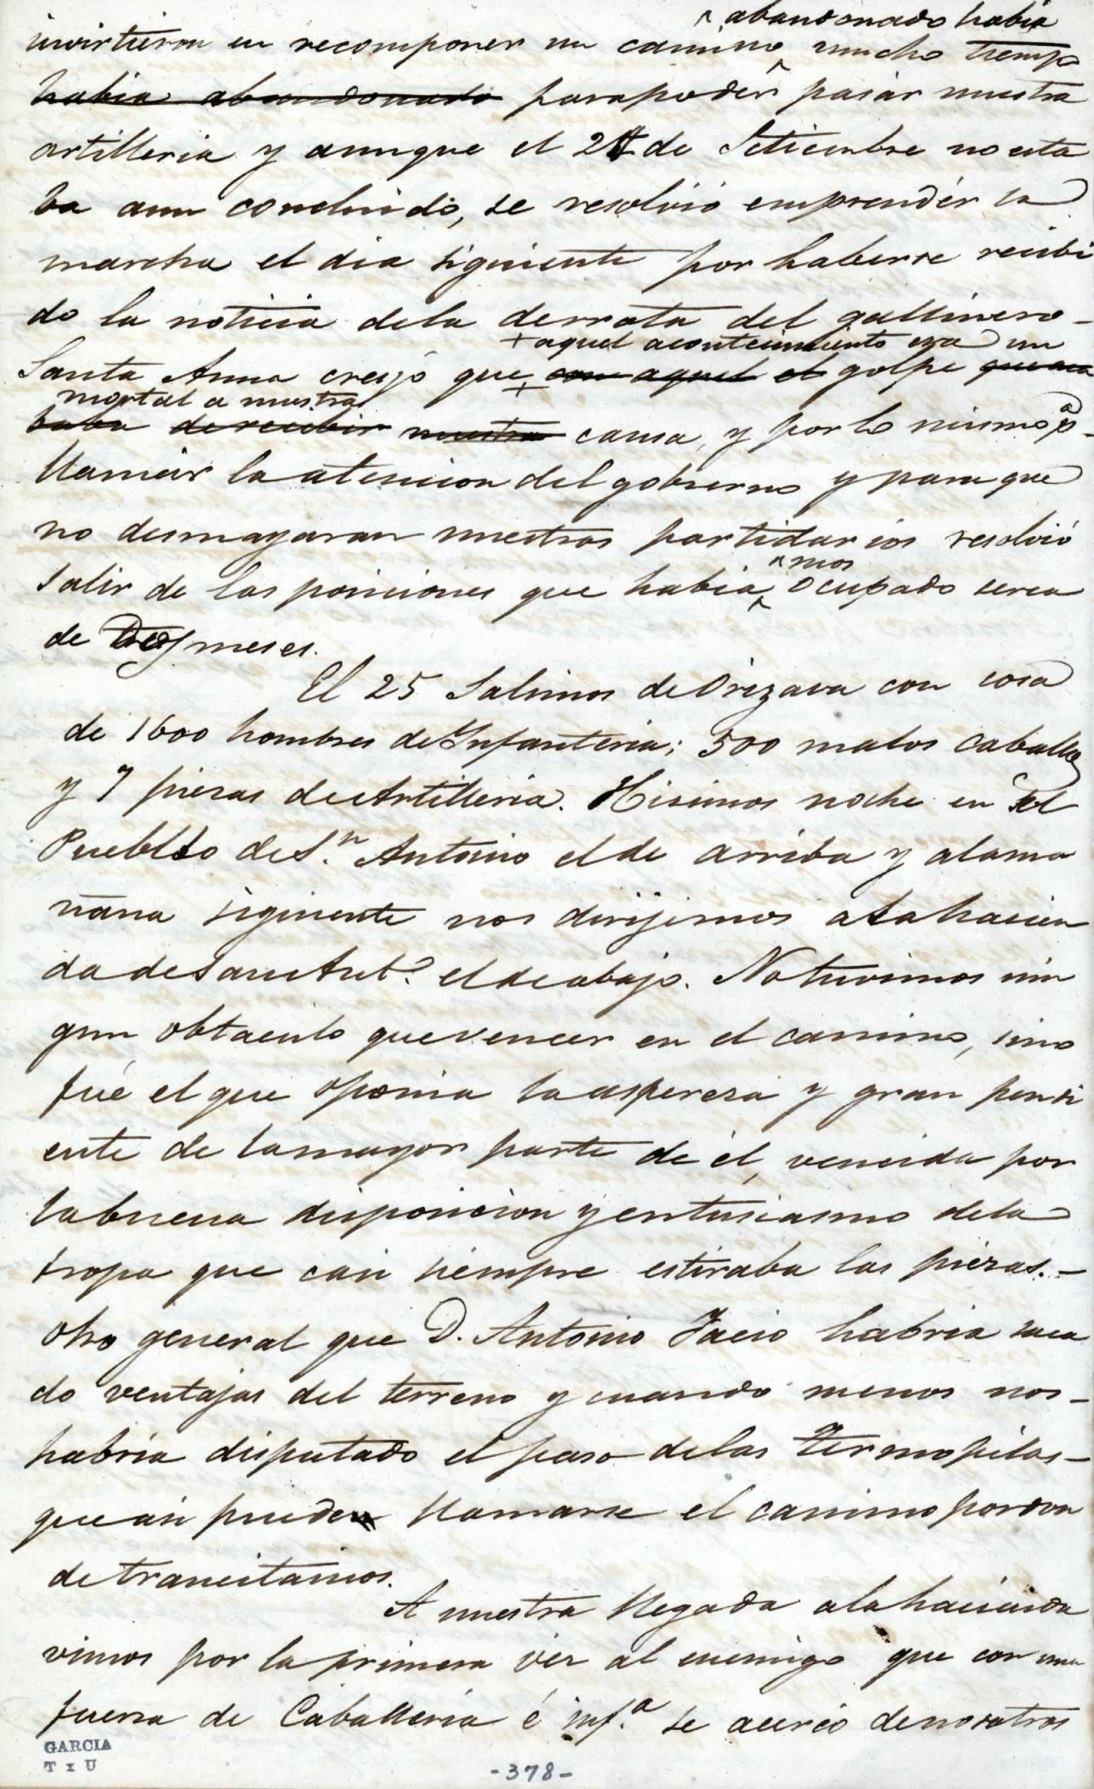 ^ abandonado habia
invirtieron en recomponer un camino ^ mucho tiempo
habia abandonado para poder pasar nuestra
artilleria y aunque el 24 de Setiembre no esta
ba aun concluido, se resolvió emprendér la
marcha el dia siguiente por haberse recibi
do la noticia dela derrota del gallinero-
+ aquel acontecimiento era un
Santa Anna creyó que + con aquel el golpe que aca
mortal a nuestra
baba de recibir nuestra causa, y por lo mismo pª
llamár la atencion del gobierno y para que
no desmayaran nuestros partidarios resolvió
^ mos
salir de las posiciones que habia ^ ocupado cerca
de tres meses.
El 25 Salimos de Orizava con cosa
de 1600 hombres de Infanteria; 500 malos caballos
y 7 piezas de Artilleria. Hicimos noche en el
Pueblo de S.n Antonio el de arriba y ala ma
ñana siguiente nos dirijimos ala hacien
da de San Ant.o el de abajo. No tuvimos nin
gun obtaculo que vencer en el camino, sino
fué el que oponia la aspereza y gran pendi
ente de la mayor parte de él, vencida por
la buena disposicion y entusiasmo dela
tropa que casi siempre estiraba las piezas.-
Otro general que D. Antonio Facio habria saca
do ventajas del terreno y cuando menos nos-
habria disputado el paso delas Termopilas-
que asi pueden llamarse el camino por don
de transitamos.
A nuestra llegada ala hacienda
vimos por la primera vez al enemigo que con una
fuerza de Caballeria é inf.a se acercó de nosotros
GARCIA
T x U
-378-